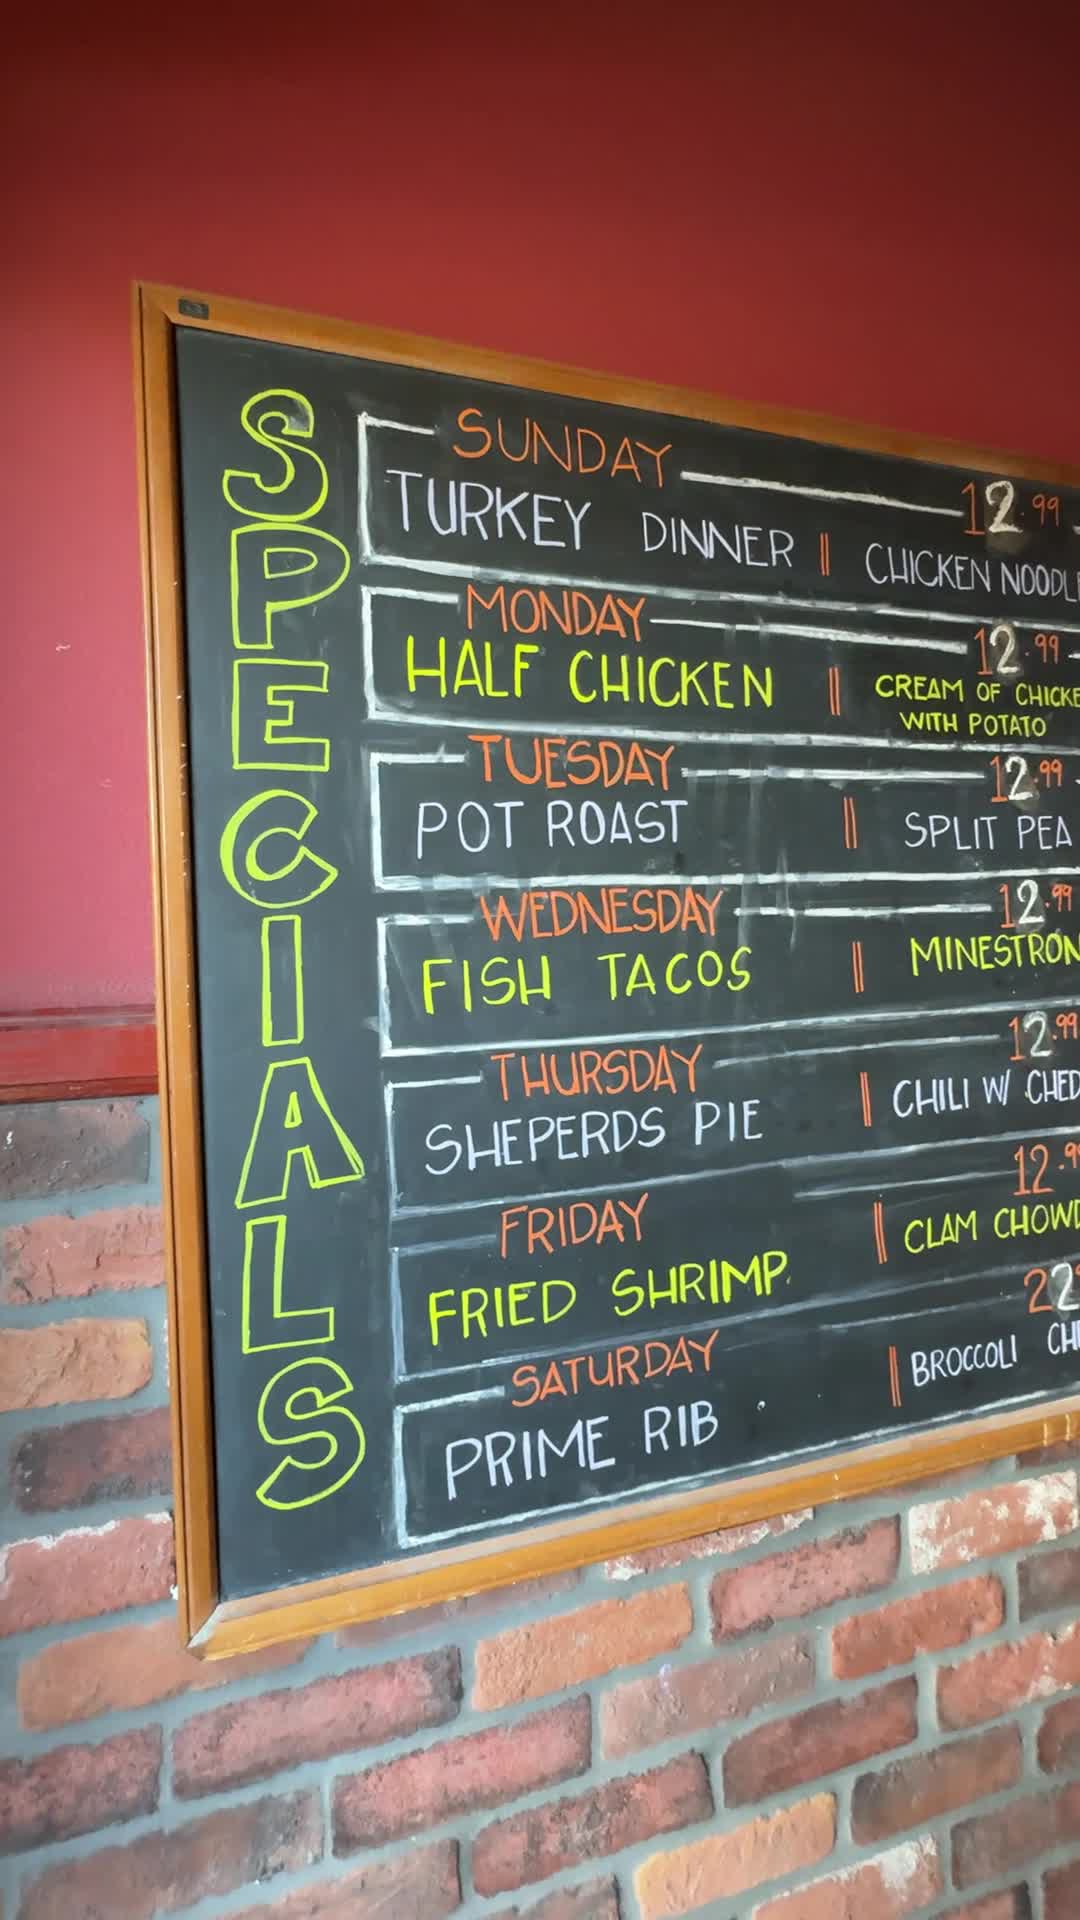 SPECIALS
SUNDAY 12.99
TURKEY DINNER || CHICKEN NOODLE
MONDAY 12.99
HALF CHICKEN || CREAM OF CHICKE
WITH POTATO
TUESDAY 12.99
POT ROAST || SPLIT PEA
WEDNESDAY 12.99
FISH TACOS || MINESTRON
THURSDAY 12.99
SHEPERDS PIE || CHILI W/ CHED
FRIDAY 12.9
FRIED SHRIMP || CLAM CHOWD
SATURDAY 22
PRIME RIB || BROCCOLI CH